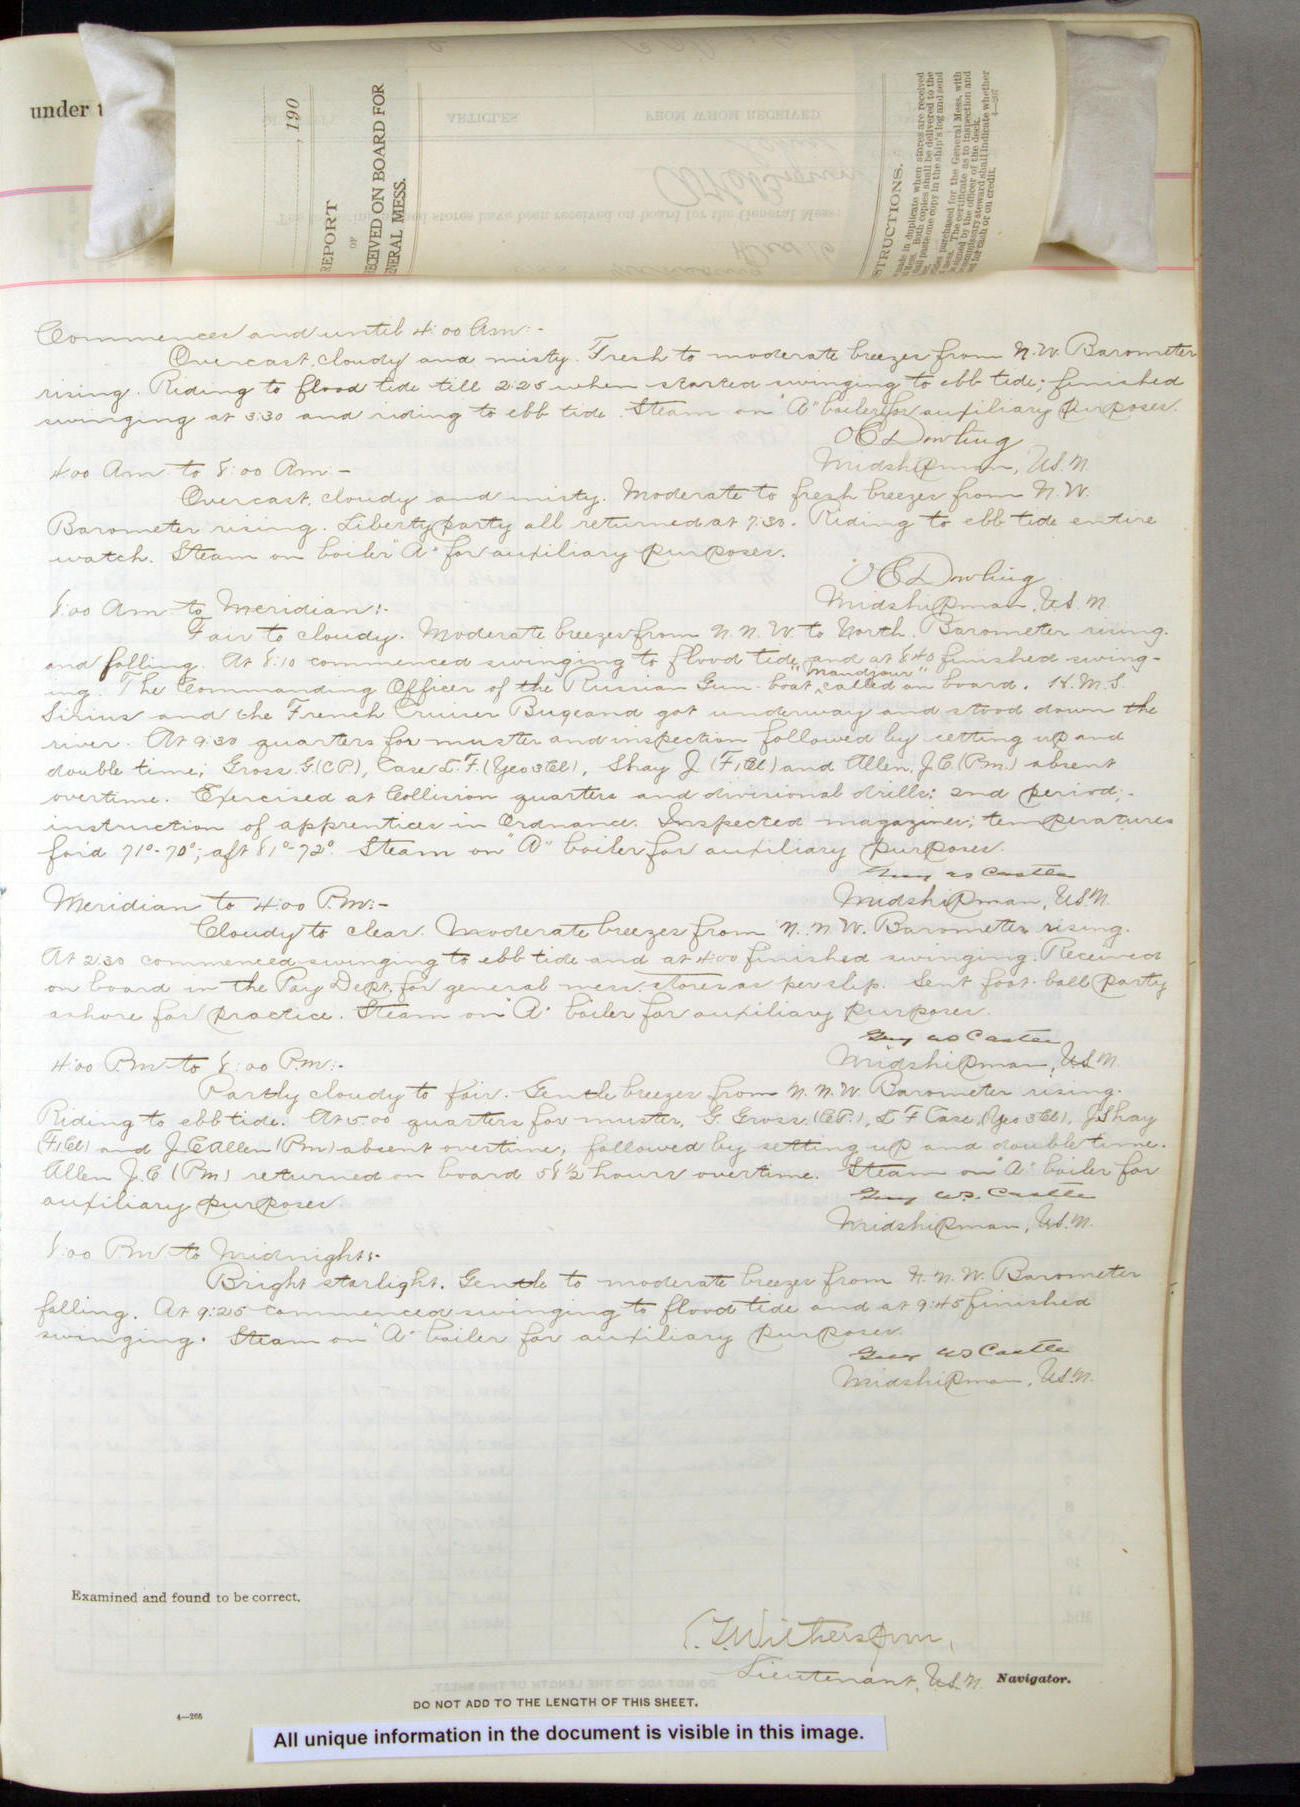 under t
, 190
REPORT
OF
ECEIVED ON BOARD FOR
NERAL MESS.
ARTICLES
FROM WHOM RECEIVED
STRUCTIONS.
made in duplicate when stores are received
Both copies shall be delivered to the
paste one copy in the ship's log and send
purchased for the General Mess, with
The certificate as to inspection and
signed by the officer of the deck.
commissary steward shall indicate whether
for cash or on credit.
4—267
Commences and until 4:00 Am:-
Overcast, cloudy and misty. Fresh to moderate breezes from N.W. Barometer
rising. Riding to flood tide till 2:25 when started swinging to ebb tide; finished
swinging at 3:30 and riding to ebb tide. Steam on "A" boiler for auxiliary purposes.
O C Dowling
Midshipman, U.S.N.
4:00 Am. to 8:00 Am:-
Overcast, cloudy and misty. Moderate to fresh breezes from N.W.
Barometer rising. Liberty party all returned at 7:30. Riding to ebb tide entire
watch. Steam on boiler "A" for auxiliary purposes.
O C Dowling
Midshipman, U.S.N.
8:00 Am. to Meridian:-
Fair to cloudy. Moderate breezes from N.N.W. to North. Barometer rising
and falling. At 8:10 commenced swinging to flood tide and at 8:40 finished swing-
ing. The Commanding Officer of the Russian Gun-boat "Mandjour" called on board. H.M.S.
Sirius and the French Cruiser Bugeaud got underway and stood down the
river. At 9:30 quarters for muster and inspection followed by setting up and
double time; Gross G. (C.P.), Case L.F. (Yeo 3 Cl), Shay J. (F, 1 Cl) and Allen, J.C. (P.m.) absent
overtime. Exercised at Collision quarters and divisional drills; 2nd period;-
instruction of apprentices in Ordnance. Inspected magazines; temperatures
for'd 71°-70°; aft 81°-72°. Steam on "A" boiler for auxiliary purposes.
Guy W S Castle
Midshipman, U.S.N.
Meridian to 4:00 P.m:-
Cloudy to clear. Moderate breezes from N.N.W. Barometer rising.
At 2:30 commenced swinging to ebb tide and at 4:00 finished swinging. Received
on board in the Pay Dept. for general mess, stores as per slip. Sent foot-ball party
ashore for practice. Steam on "A" boiler for auxiliary purposes.
Guy W S Castle
Midshipman, U.S.N.
4:00 P.m. to 8:00 P.m:-
Partly cloudy to fair. Gentle breezes from N.N.W. Barometer rising.
Riding to ebb tide. At 5:00 quarters for muster, G. Gross (C.P.), L F Case, (Yeo 3 Cl), J. Shay
(F, 1 Cl) and J.C. Allen (P.m.) absent overtime, followed by setting up and double time.
Allen J.C. (P.m.) returned on board 58 1/2 hours overtime. Steam on "A" boiler for
auxiliary purposes
Guy W.S. Castle
Midshipman, U.S.N.
8:00 P.m. to Midnight:-
Bright starlight. Gentle to moderate breezes from N.N.W. Barometer
falling. At 9:25 commenced swinging to flood tide and at 9:45 finished
swinging. Steam on "A" boiler for auxiliary purposes.
Guy W S Castle
Midshipman, U.S.N.
Examined and found to be correct.
Witherspoon,
Lieutenant, U.S.N. Navigator.
DO NOT ADD TO THE LENGTH OF THIS SHEET.
4—266
All unique information in the document is visible in this image.